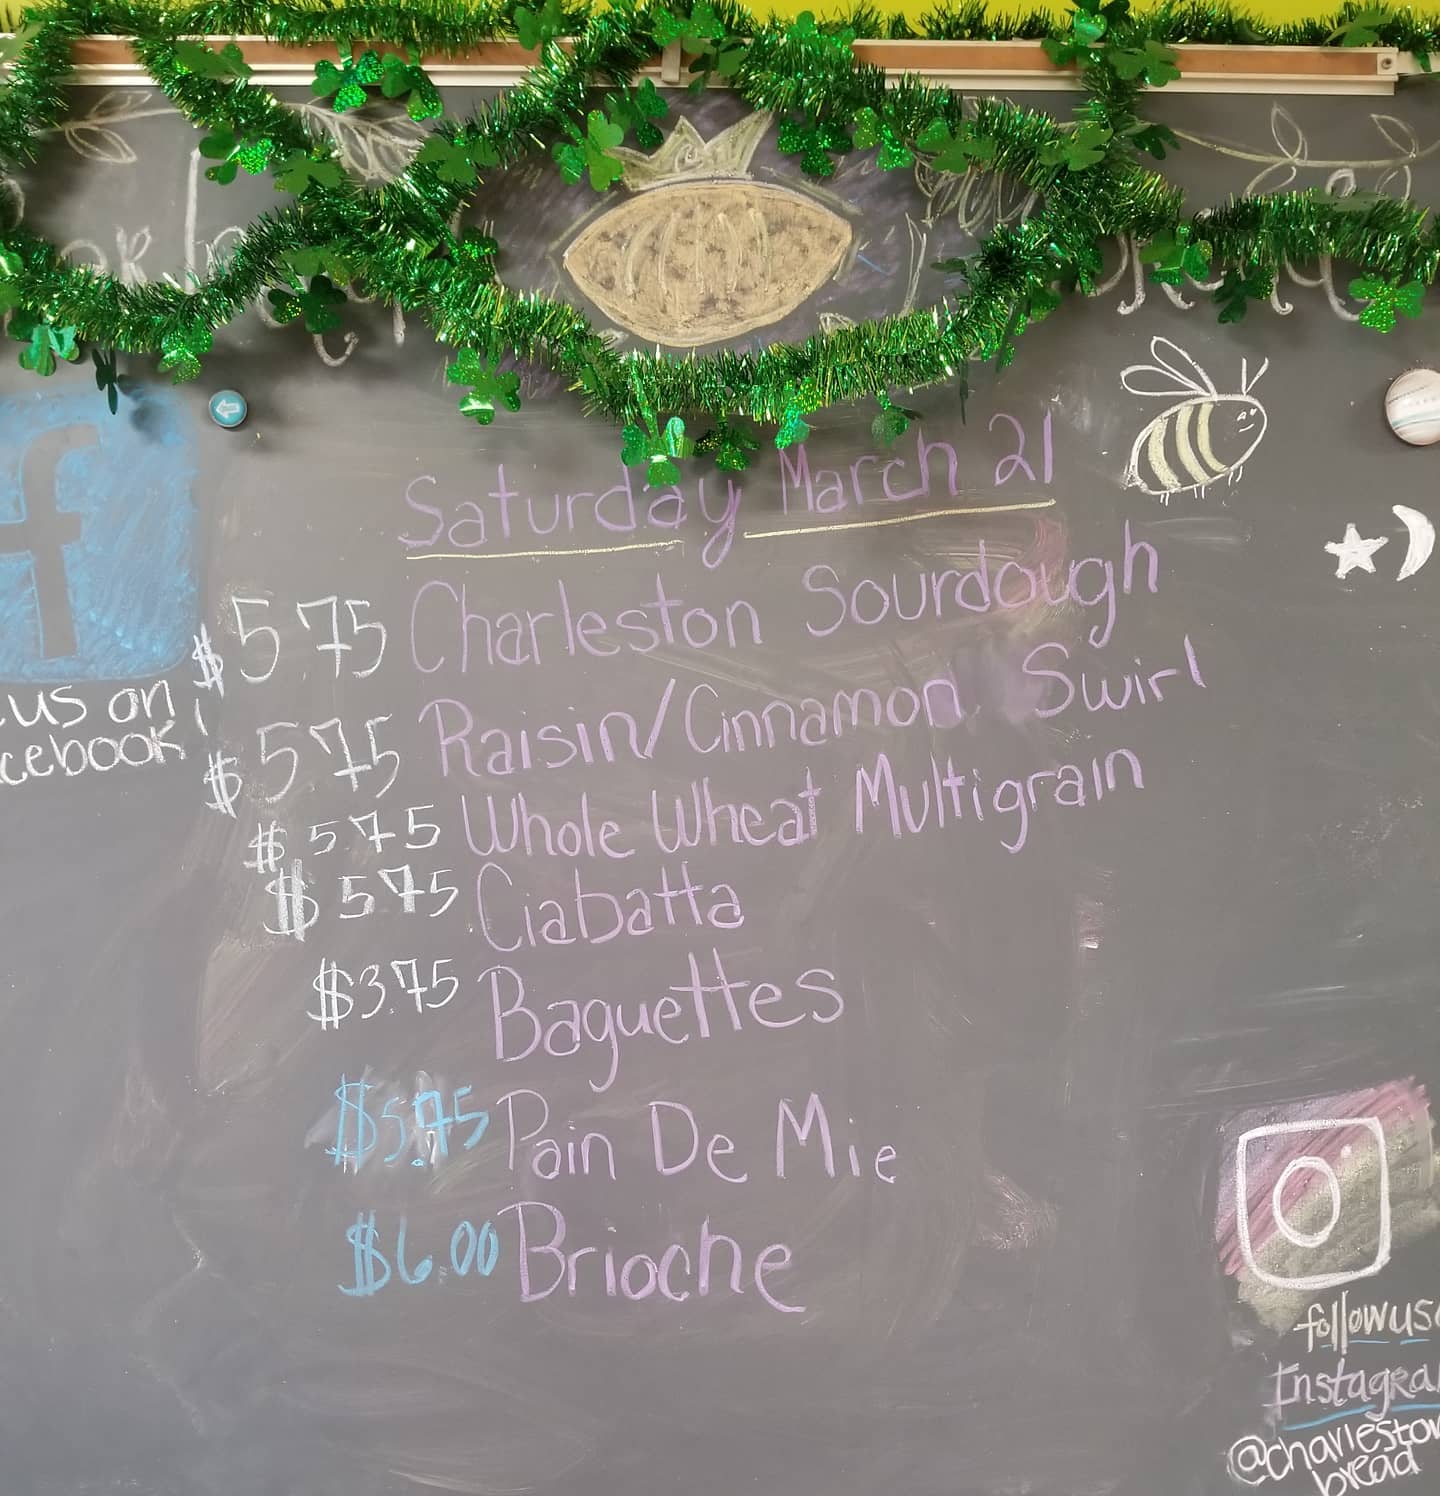 Saturday March 21
$5.75 Charleston Sourdough
$5.75 Raisin/Cinnamon Swirl
$5.75 Whole Wheat Multigrain
$5.75 Ciabatta
$3.75 Baguettes
$5.75 Pain De Mie
$6.00 Brioche
f
us on
cebook!
follow us
Instagra
@charleston
bread